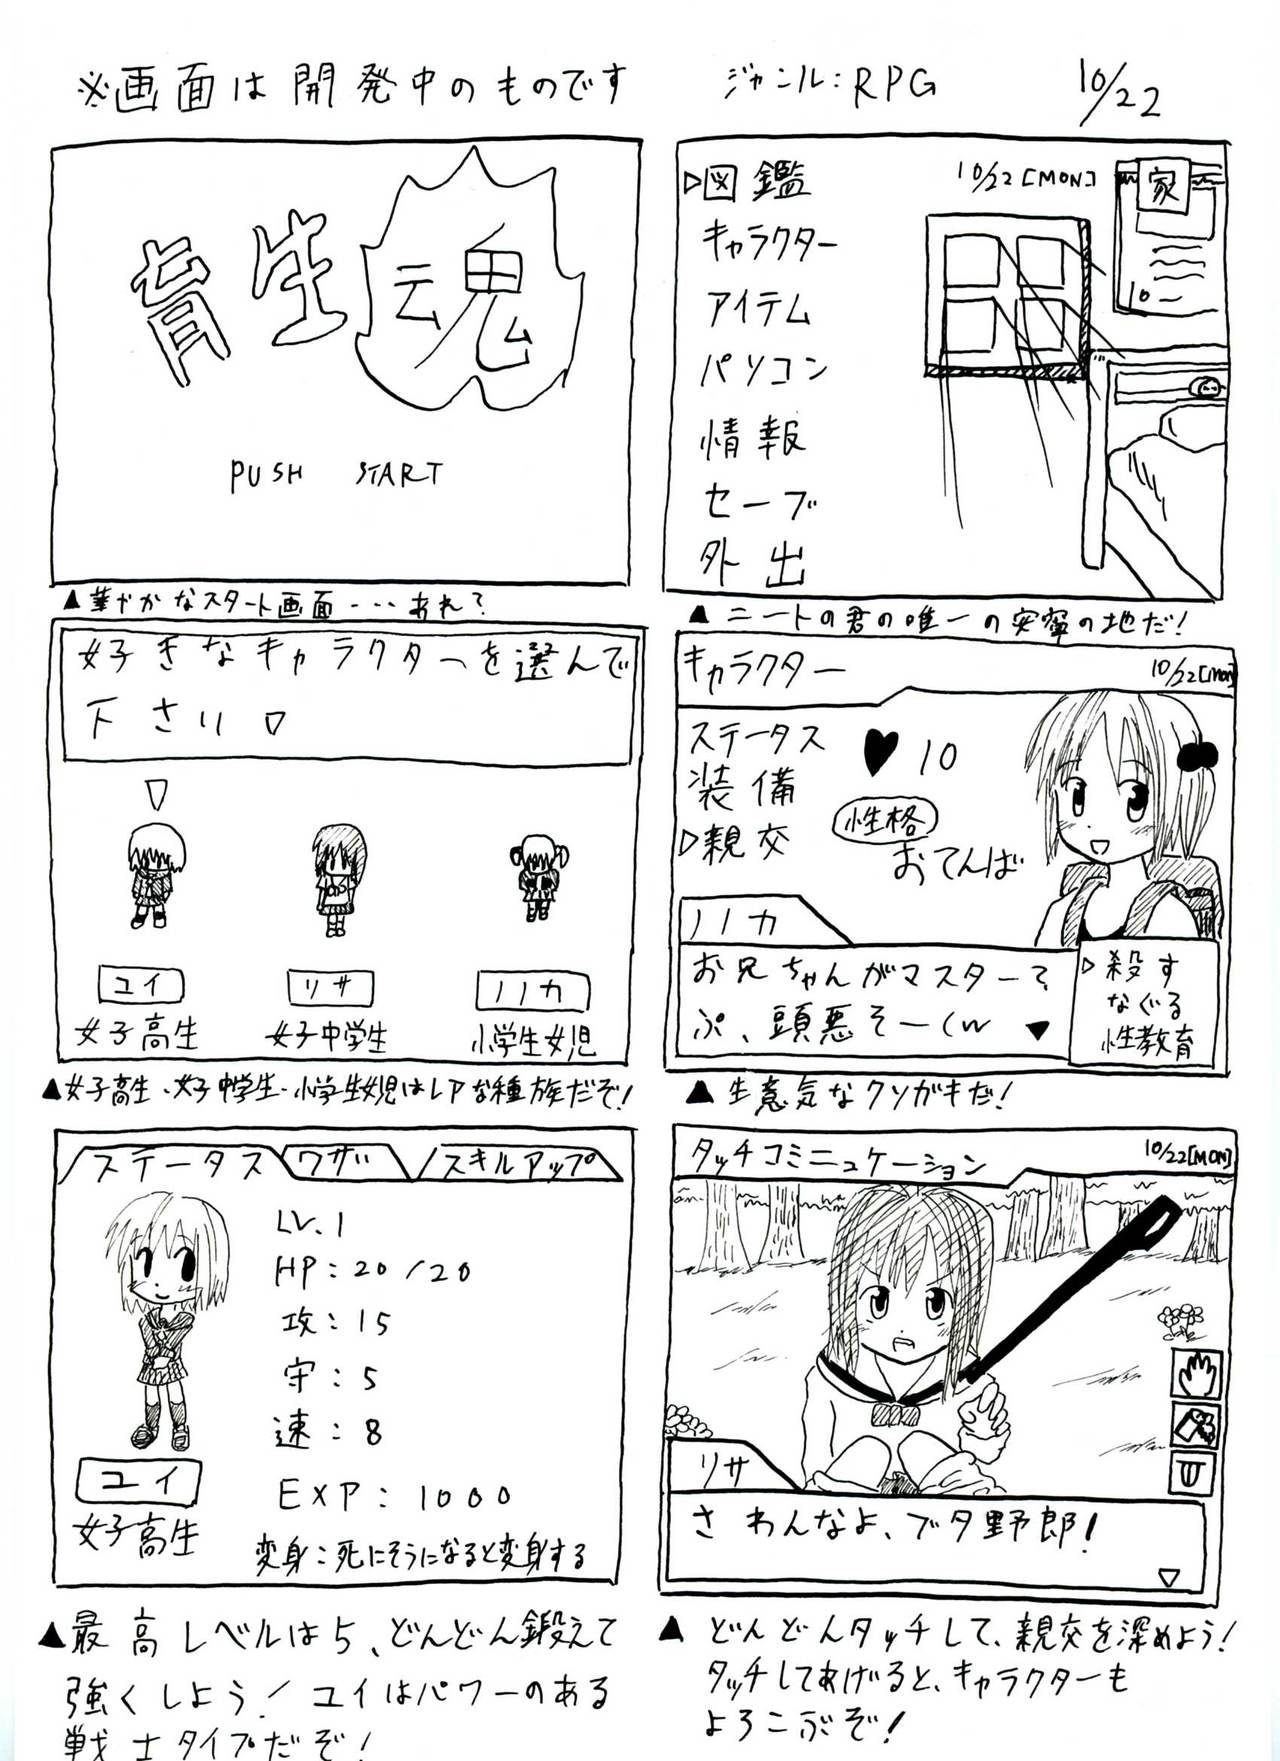 ※画面は開発中のものです
ジャンル：RPG
10/22
育生魂
PUSH START
▲華やかなスタート画面･･･あれ？
▷図鑑
キャラクター
アイテム
パソコン
情報
セーブ
外出
10/22[MON]
家
▲ニートの君の唯一の安寧の地だ！
好きなキャラクターを選んで
下さい▽
▽
ユイ
女子高生
リサ
女子中学生
ノノカ
小学生女児
▲女子高生・女子中学生・小学生女児はレアな種族だぞ！
キャラクター
10/22[MON]
ステータス
装備
▷親交
♥10
性格
おてんば
ノノカ
お兄ちゃんがマスター？
ぷ、頭悪そーｗ
▼
▷殺す
なぐる
性教育
▲生意気なクソガキだ！
ステータス
ワザ
スキルアップ
LV.1
HP：20/20
攻：15
守：5
速：8
EXP：1000
変身：死にそうになると変身する
ユイ
女子高生
▲最高レベルは5、どんどん鍛えて
強くしよう！ユイはパワーのある
戦士タイプだぞ！
タッチコミュニケーション
10/22[MON]
リサ
さわんなよ、ブタ野郎！
▽
▲どんどんタッチして、親交を深めよう！
タッチしてあげると、キャラクターも
よろこぶぞ！